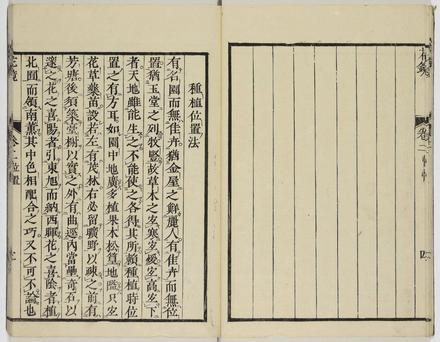 種植位置法
有名園而無佳卉猶金屋之鮮麗人有佳卉而無位
置猶玉堂之列牧豎故草木之宜寒宜暖宜高宜下
者天地雖能生之不能使之各得其所賴種植時位
置之有方耳如園中地廣多植果木松篁地隘只宜
花草藥苗設若左有茂林右必留曠野以疎之前有
芳塘後須築臺榭以實之外有曲逕內當壘奇石以
邃之花之喜陽者引東旭而納西暉花之喜陰者植
北囿而領南薰其中色相配合之巧又不可不論也
花鏡
卷二
位置
卷二